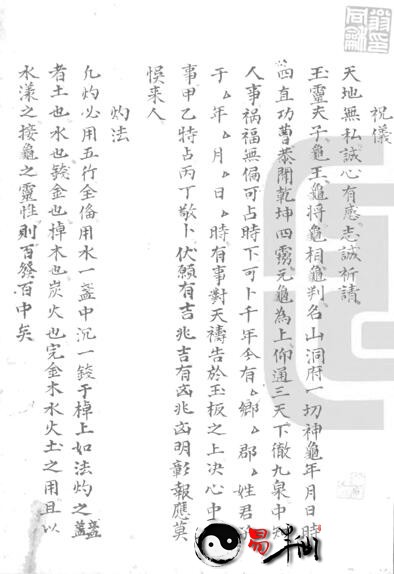 祝儀
天地無私誠心有應志誠祈請
玉靈夫子龜王龜將龜相龜判名山洞府一切神龜年月日時
四直功曹恭聞乾坤四靄元龜為上仰通三天下徹九泉中知
人事禍福無偏可占時下可卜千年今有厶鄉厶郡厶姓君
于厶年厶月厶日厶時有事對天禱告於玉板之上决心中
事甲乙特占丙丁敬卜伏願有吉兆吉有凶兆凶明彰報應莫
悞来人
灼法
凡灼必用五行全俻用水一盞中沉一錢于棹上如法灼之盞
者土也水也錢金也棹木也炭火也完金木水火土之用且以
水漾之接龜之靈性則百發百中矣
翁同龢印
易半仙